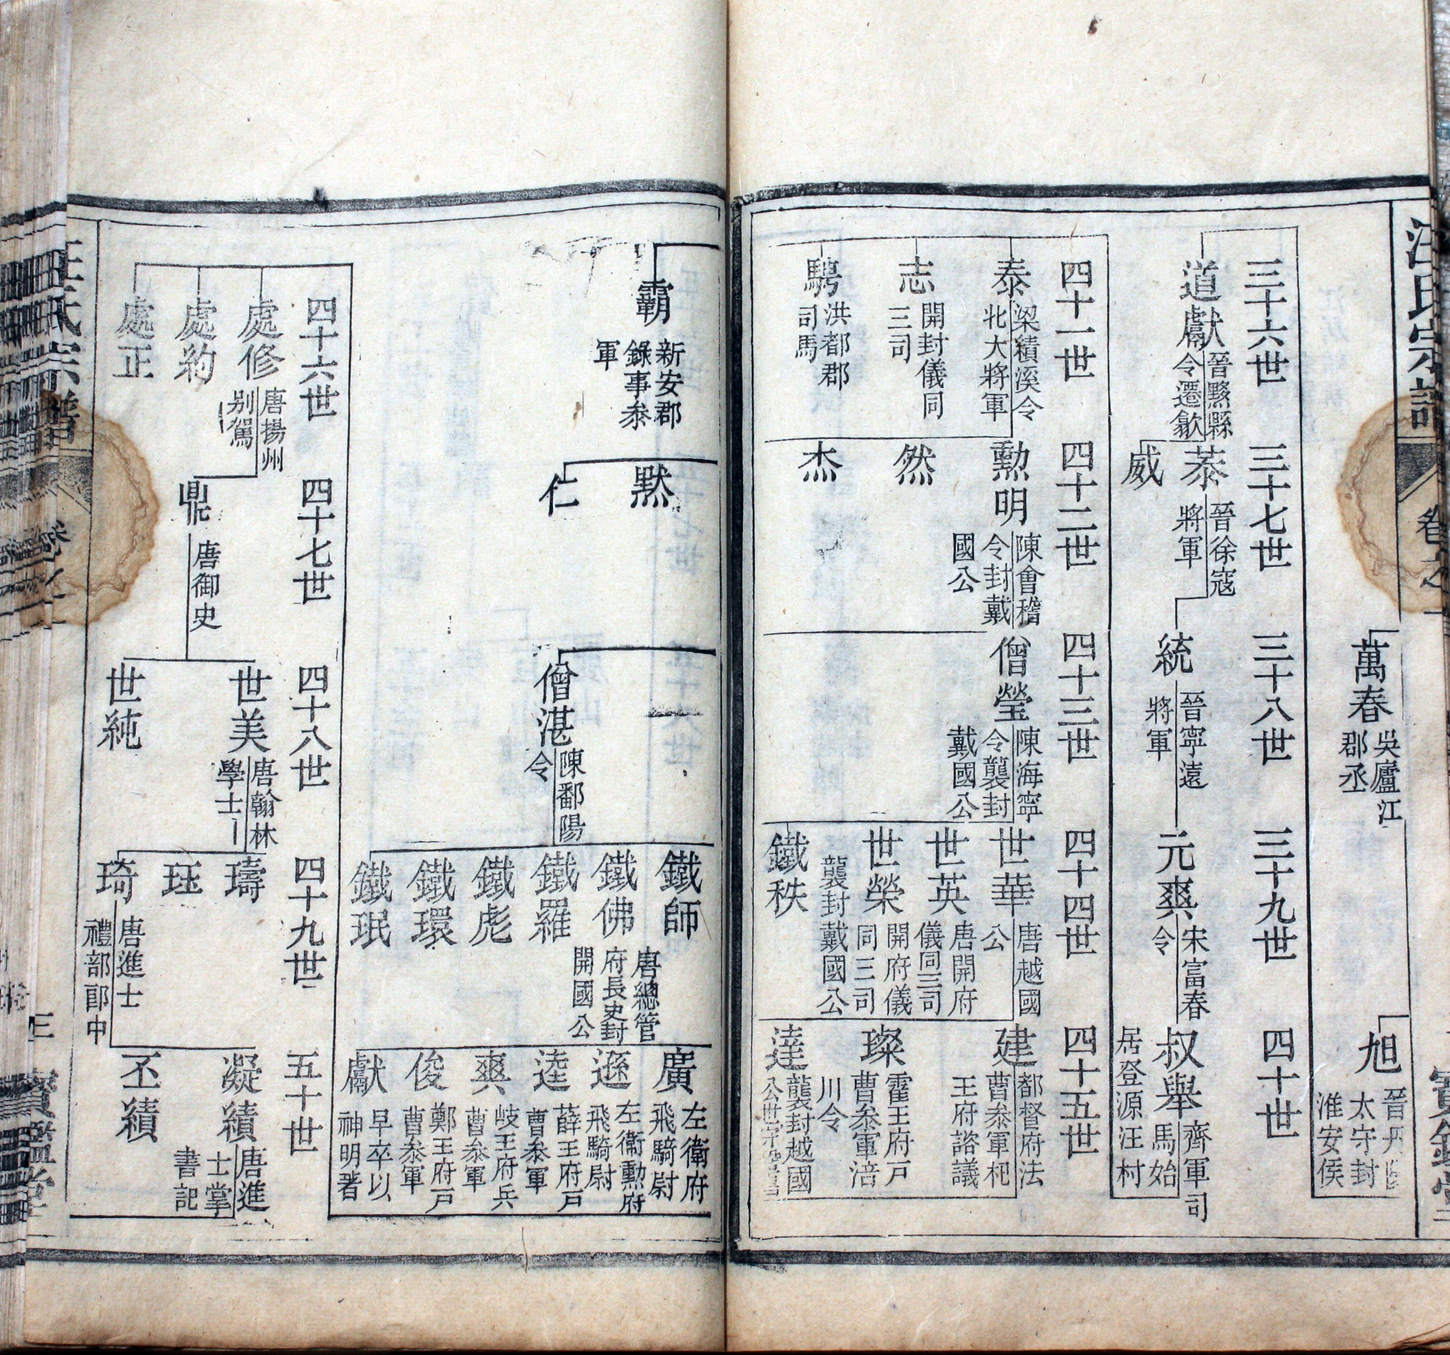 汪氏宗譜
卷之一
寶鑑堂
萬春
吳廬江
郡丞
旭
晉丹陽
太守封
淮安侯
三十六世
三十七世
三十八世
三十九世
四十世
道獻
晉黟縣
令遷歙
菾
晉徐寇
將軍
威
統
晉寧遠
將軍
元爽
宋富春
令
叔舉
齊軍司
馬始
居登源汪村
四十一世
四十二世
四十三世
四十四世
四十五世
泰
梁績溪令
北大將軍
志
開封儀同
三司
騁
洪都郡
司馬
勳明
陳會稽
令封戴
國公
然
杰
僧瑩
陳海寧
令襲封
戴國公
世華
唐越國
公
世英
唐開府
儀同三司
世榮
開府儀
同三司
襲封戴國公
鐵秩
建
都督府法
曹叅軍杞
王府諮議
璨
霍王府戸
曹叅軍涪
川令
達
襲封越國
霸
新安郡
錄事叅
軍
默
仁
僧湛
陳鄱陽
令
鐵師
鐵佛
唐總管
府長史封
開國公
鐵羅
鐵彪
鐵環
鐵珉
廣
左衛府
飛騎尉
遜
左衛勲府
飛騎尉
逵
薛王府戸
曹叅軍
爽
岐王府兵
曹叅軍
俊
鄭王府戸
曹叅軍
獻
早卒以
神明著
四十六世
四十七世
四十八世
四十九世
五十世
處修
唐揚州
别駕
處約
處正
鼎
唐御史
世美
唐翰林
學士
世純
璹
珏
琦
唐進士
禮部郎中
凝績
唐進
士掌
書記
丕績
汪氏宗譜
卷之一
三
寶鑑堂